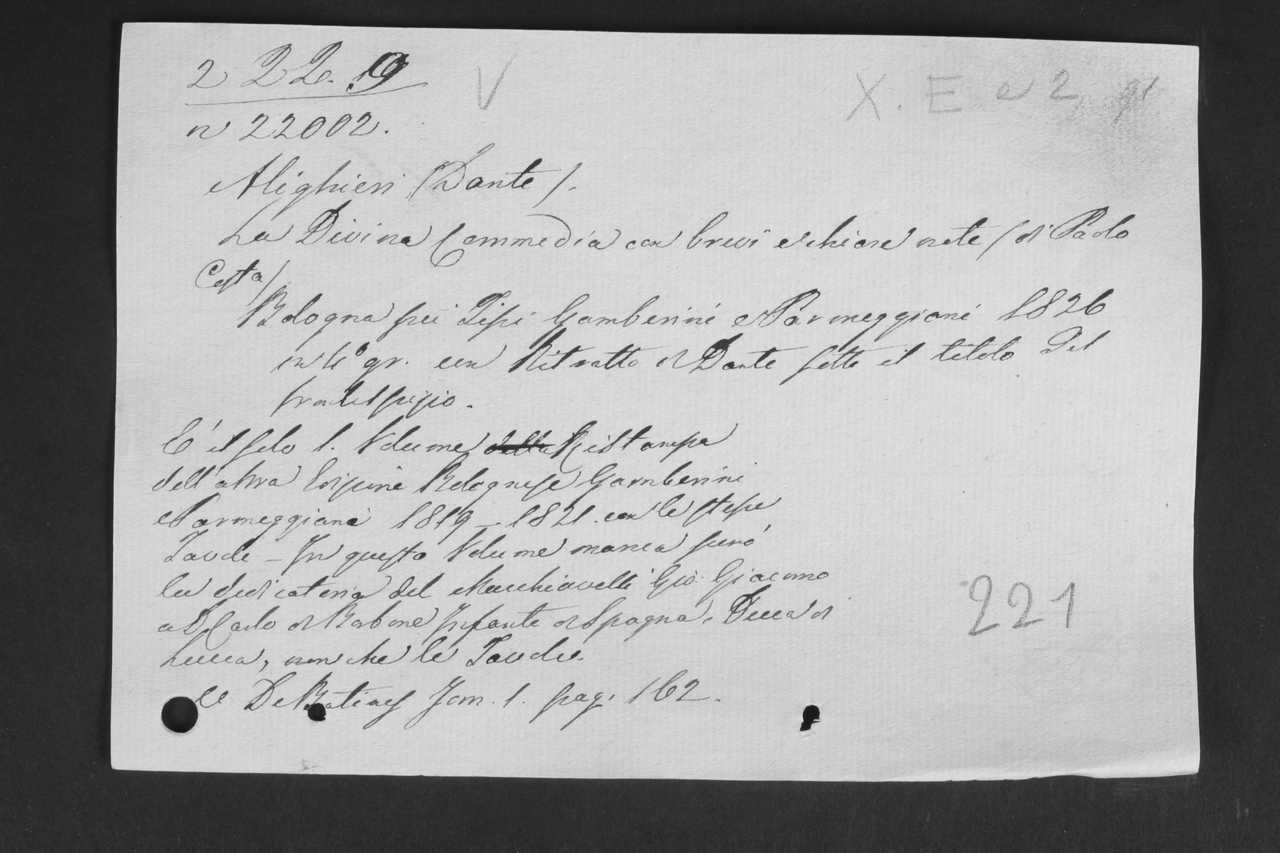 2 22. 9
V
X. E e 2
n 22002.
Alighieri (Dante).
La Divina Commedia con brevi e chiare note (di Paolo
Costa)
Bologna pei Tipi Gamberini e Parmeggiani 1826
in 4° gr. con Ritratto di Dante sotto il titolo del
frontespizio.
E' il solo 1. Volume Ristampa
dell'altra Edizione Bolognese Gamberini
e Parmeggiani 1819 - 1821. con le stesse
Tavole - In questo Volume manca però
la dedicatoria del Macchiavelli Gio: Giacomo
a D. Carlo di Borbone Infante di Spagna, Duca di
Lucca, non che le Tavole.
221
De Batines Tom. 1. pag. 162.